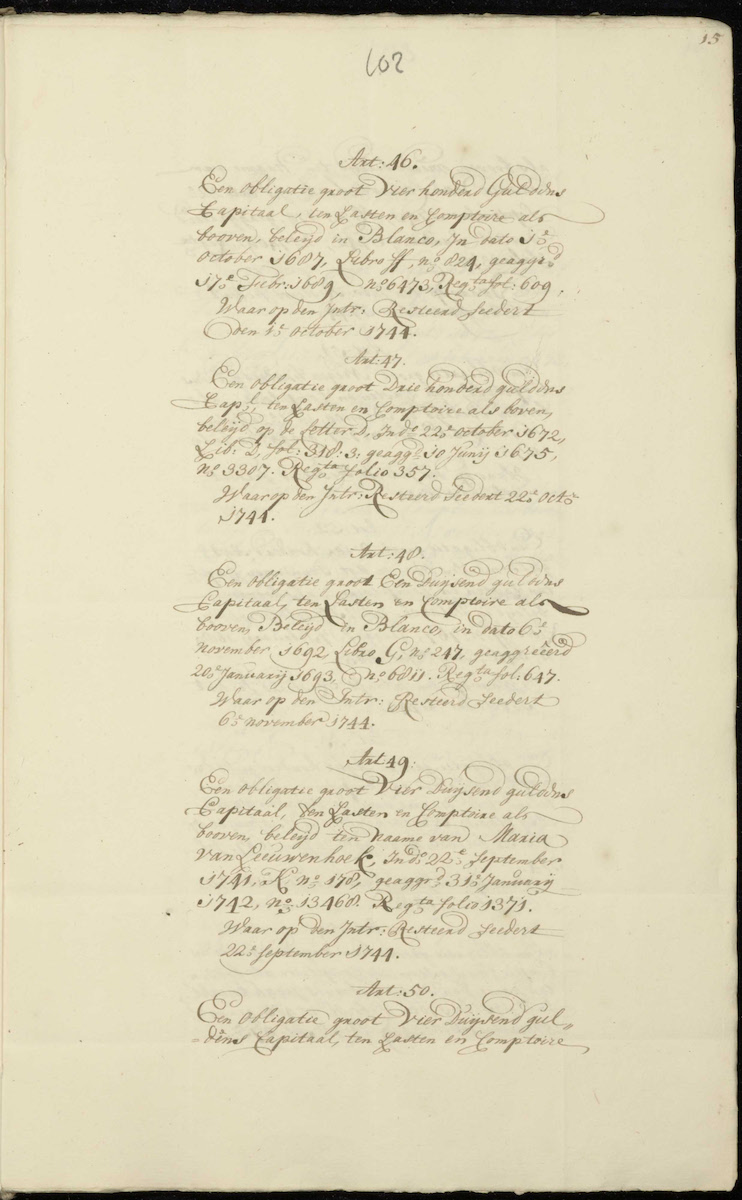 15
102
Art: 46.
Een obligatie groot Vier honderd Guldens
Capitaal, ten Lasten en Comptoire als
booven, beleijd in Blanco, In dato 1e
october 1687, Libro ff, no 824, geaggrd
17e Febr: 1689, no 6473, Regta fol: 609.
Waar op den Intr: Resteerd seedert
den 1e october 1744.
Art: 47.
Een obligatie groot Drie honderd guldens
Capl, ten Lasten en Comptoire als boven,
beleijd op de Letter D, In do 22e october 1672,
Lib: D, fol: 318: 3: geaggd 10 Junij 1675,
No 3307. Regta folio 357.
Waar op den Intr: Resteerd seedert 22e octr
1744.
Art: 48.
Een obligatie groot Een Duijsend guldens
Capitaal, ten Lasten en Comptoire als
booven, Beleijd in Blanco, in dato 6e
november 1692, Libro G, no 247, geaggreërd
20e Januarij 1693, no 6811. Regta fol: 647.
Waar op den Intr: Resteerd seedert
6e november 1744.
Art 49:
Een obligatie groot Vier Duijsend guldens
Capitaal, ten Lasten en Comptoire als
booven, beleijd ten Naame van Maria
van Leeuwenhoek, In do 22e september
1741, K, no 178, geaggrd 31e Januarij
1742, no: 13468. Regta folio 1371.
Waar op den Intr: Resteerd seedert
22e september 1744.
Art: 50.
Een obligatie groot Vier Duijsend gul„
„dens Capitaal, ten Lasten en Comptoire